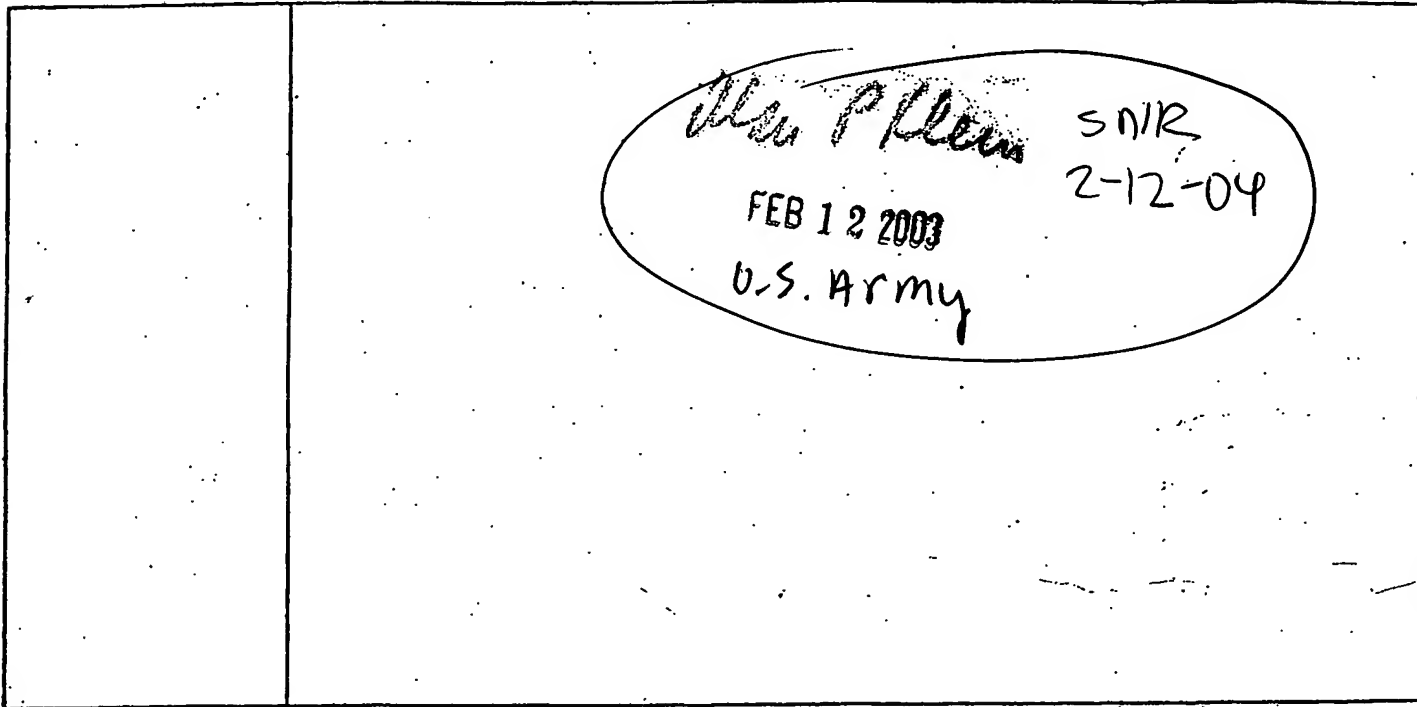 Alan P Klein
SN/R
2-12-04
FEB 12 2003
U.S. Army